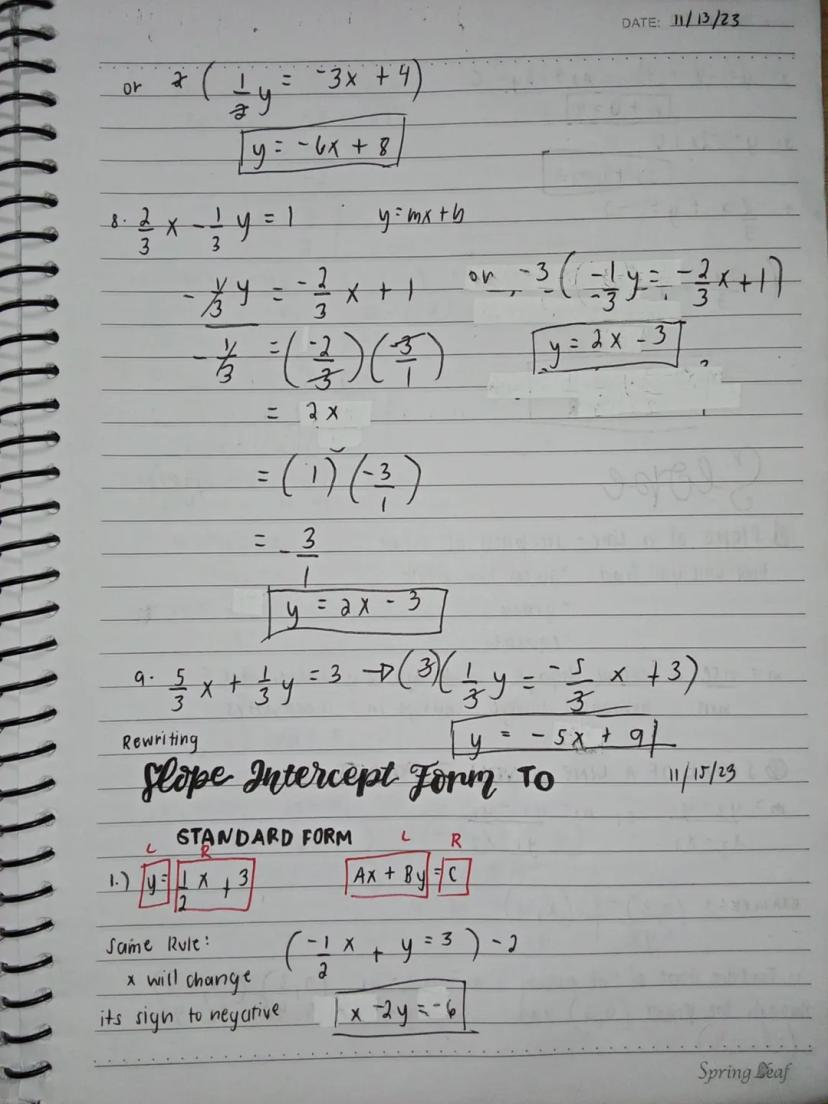 DATE: 11/13/23
or 2 ( 1/2 y = -3x + 4 )
y = -6x + 8
8. 2/3 x - 1/3 y = 1 y = mx + b
- 1/3 y = -2/3 x + 1 or -3 ( -1/-3 y = -2/3 x + 1 )
- 1/3 = ( -2/3 ) ( -3/1 ) y = 2x - 3
= 2x
= ( 1 ) ( -3/1 )
= - 3/1
y = 2x - 3
9. 5/3 x + 1/3 y = 3 → (3) ( 1/3 y = -5/3 x + 3 )
y = -5x + 9
Rewriting
Slope Intercept Form TO 11/15/23
STANDARD FORM
L R L R
1.) y = 1/2 x + 3 Ax + By = C
Same Rule: ( -1/2 x + y = 3 ) -2
x will change
its sign to negative x - 2y = -6
Spring Leaf